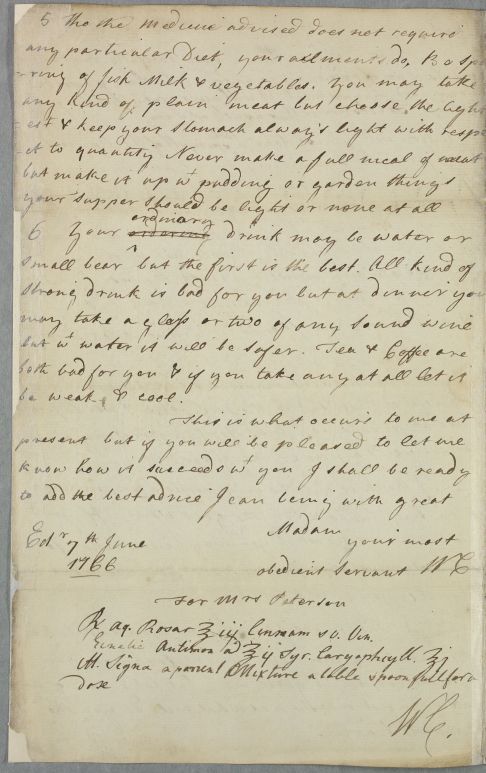 5 Tho the Medicine advised does not require
any particular Diet, your ailments do, Be a spa-
-ring of fish Milk & vegetables. You may take
any kind of plain meat but choose the light
-est & keep your stomach always light with respe
-ct to quantity Never make a full meal of meat
but make it up wt pudding or garden things
your supper should be light or none at all
6 Your ordinary drink may be water or
small bear but the first is the best. All kind of
strong drink is bad for you but at dinner you
may take a glass or two of any sound wine
but wt water it will be safer. Tea & Coffee are
both bad for you & if you take any at all let it
be weak & cool.
This is what occurs to me at
present but if you will be pleased to let me
know how it succeeds wt you I shall be ready
to add the best advice I can being with great
Madam your most
Edr 7th June
1766
obedient servant WC
For Mrs Peterson
Rx aq. Rosar ℥iij Cinnam s v. Vin.
Emetic Antimon ad ℥ij Syr. Caryophyll. ℥j
M. Signa a pectoral Mixture a table spoonfull for a
dose
WC.